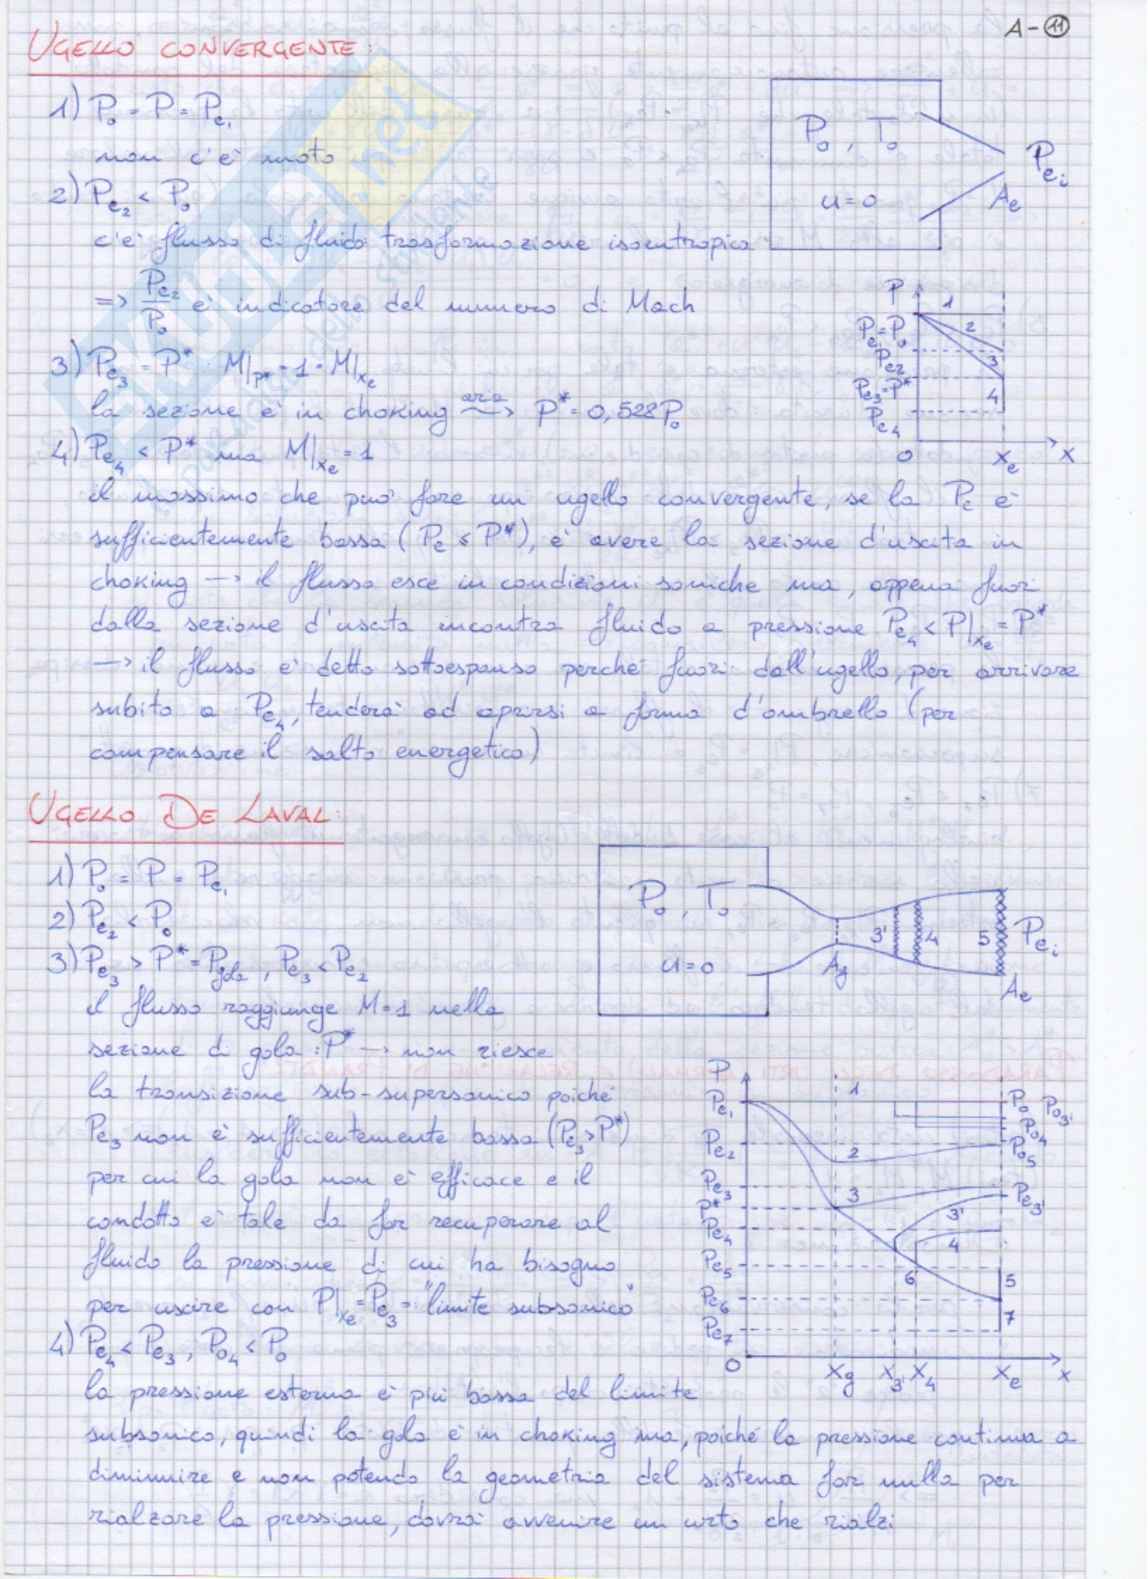 A-11
UGELLO CONVERGENTE:
1) P₀ = P = Pe₁
non c'è moto
2) Pe₂ < P₀
c'è flusso di fluido trasformazione isoentropica
=> Pe₂/P₀ è indicatore del numero di Mach
3) Pe₃ = P* M|P* = 1 = M|xe
la sezione è in choking aria ~> P* = 0,528 P₀
4) Pe₄ < P* ma M|xe = 1
il massimo che può fare un ugello convergente, se la Pe è
sufficientemente bassa (Pe ≤ P*), è avere la sezione d'uscita in
choking → il flusso esce in condizioni soniche ma, appena fuori
dalla sezione d'uscita incontra fluido a pressione Pe₄ < P|xe = P*
→ il flusso è detto sottoespanso perché fuori dall'ugello, per arrivare
subito a Pe₄, tenderà ad aprirsi a forma d'ombrello (per
compensare il salto energetico)
P₀, T₀
u=0
Pei
Ae
P
1
2
3
4
Pe₁=P₀
Pe₂
Pe₃=P*
Pe₄
0
xe
x
UGELLO DE LAVAL:
1) P₀ = P = Pe₁
2) Pe₂ < P₀
3) Pe₃ > P* = Pgola, Pe₃ < Pe₂
il flusso raggiunge M=1 nella
sezione di gola: P* → non riesce
la transizione sub-supersonico poiché
Pe₃ non è sufficientemente bassa (Pe₃>P*)
per cui la gola non è efficace e il
condotto è tale da far recuperare al
fluido la pressione di cui ha bisogno
per uscire con P|xe = Pe₃ = "limite subsonico"
4) Pe₄ < Pe₃, P₀₄ < P₀
la pressione esterna è più bassa del limite
subsonico, quindi la gola è in choking ma, poiché la pressione continua a
diminuire e non potendo la geometria del sistema far nulla per
rialzare la pressione, dovrà avvenire un urto che rialzi
P₀, T₀
u=0
Ag
3'
4
5
Pei
Ae
P
Pe₁
Pe₂
Pe₃
P*
Pe₄
Pe₅
Pe₆
Pe₇
0
1
2
3
3'
4
5
6
7
P₀
P₀₃'
P₀₄
P₀₅
Pe₃'
xg
x₃'
x₄
xe
x